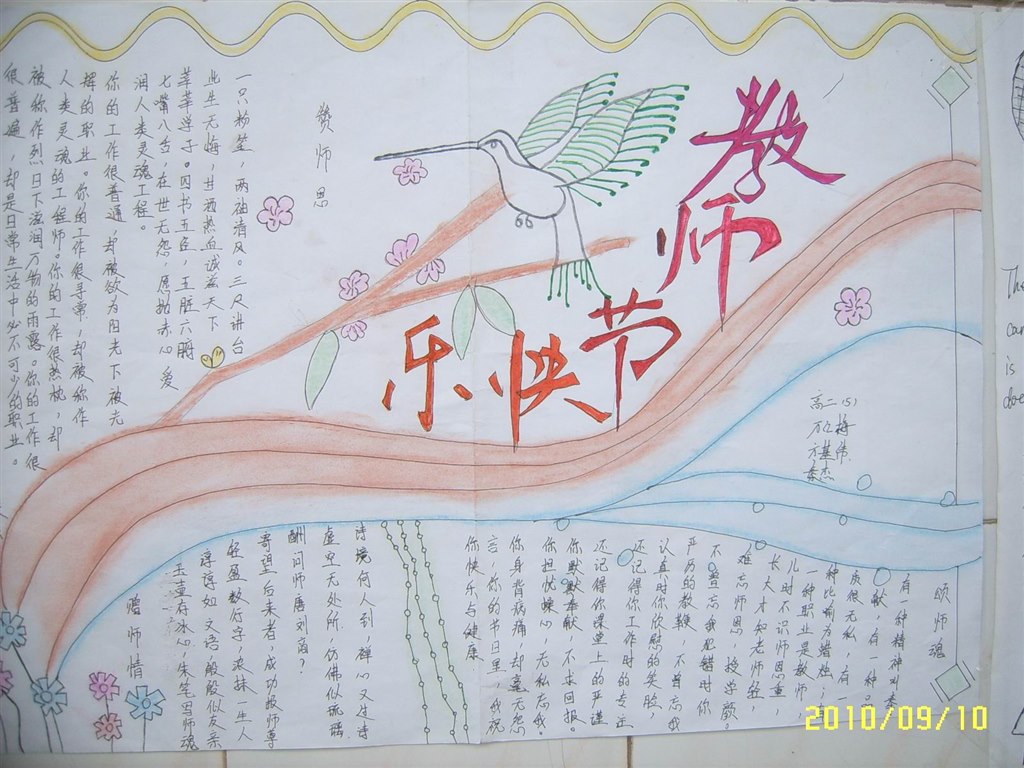 教师节
快乐
赞师恩
一只粉笔，两袖清风。三尺讲台
此生无悔，甘洒热血诚益天下
莘莘学子。四书五色，五脏六腑
七嘴八舌，在世无怨，愿抛赤心爱
润人类灵魂工程。
你的工作很普通，却被欲为阳光下被光
辉的职业。你的工作很寻常，却被称作
人类灵魂的工程师。你的工作很热忱，却
被称作烈日下滋润万物的雨露。你的工作很
很普遍，却是日常生活中必不可少的职业。
高二（5）
颂师魂
有一种精神叫奉
献，有一种品
质很无私，有一
种比喻为蜡烛，有
一种职业是教师，
儿时不识师恩重，
长大才知老师轻，
难忘师恩，授学颜。
不曾忘我犯错时你
严厉的教鞭，不曾忘我
认真时你欣慰的笑脸，
还记得你工作时的专注
还记得你课堂上的严谨
你默默奉献，不求回报。
你担忧操心，无私忘我
你身背病痛，却毫无怨
言，你的节日里，我祝
你快乐与健康
赠师情
玉壶存冰心，朱笔写师魂
谆谆如父语，殷殷似友亲
轻盈数行字，浓抹一生人
寄望后来者，成功报师尊
酬问师唐刘商？
虚空无处所，仿佛似琉璃
诗境何人到，禅心又过诗
2010/09/10
is